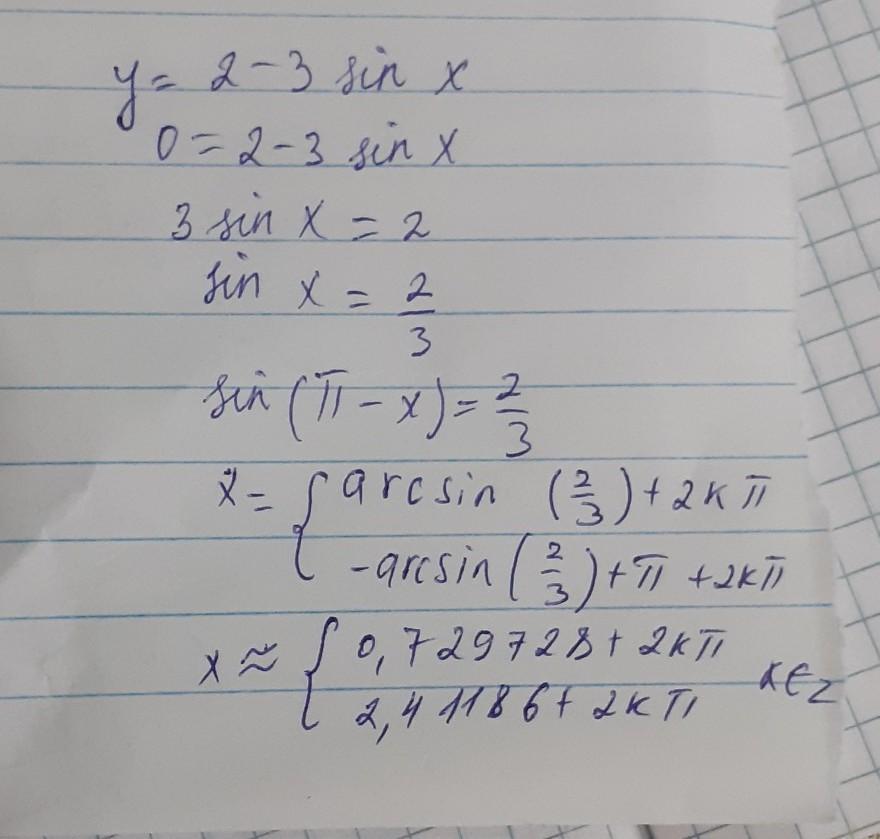 y = 2 - 3 sin x
0 = 2 - 3 sin x
3 sin x = 2
sin x = 2/3
sin (π - x) = 2/3
x = { arcsin (2/3) + 2kπ
-arcsin (2/3) + π + 2kπ
x ≈ { 0,729728 + 2kπ
2,41186 + 2kπ k∈Z